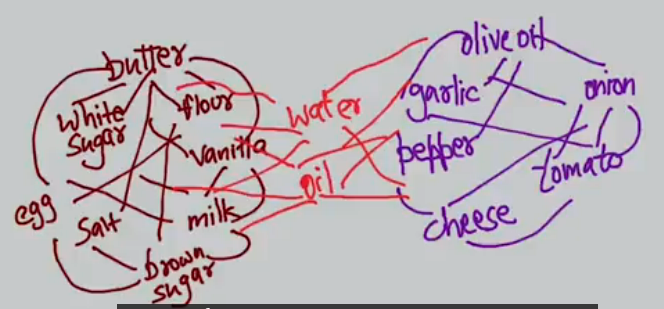 butter
white
sugar
flour
vanilla
egg
salt
milk
brown
sugar
water
oil
olive oil
garlic
onion
pepper
tomato
cheese